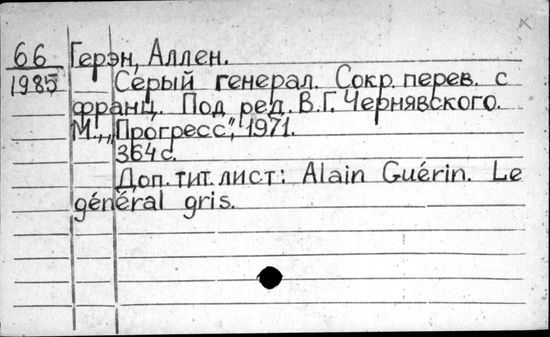 66 Герэн, Аллен.
1985 Серый генерал. Сокр. перев. с
франц. Под ред. В.Г. Чернявского.
М., „Прогресс", 1971.
364 с.
Доп. тит. лист: Alain Guérin. Le
général gris.